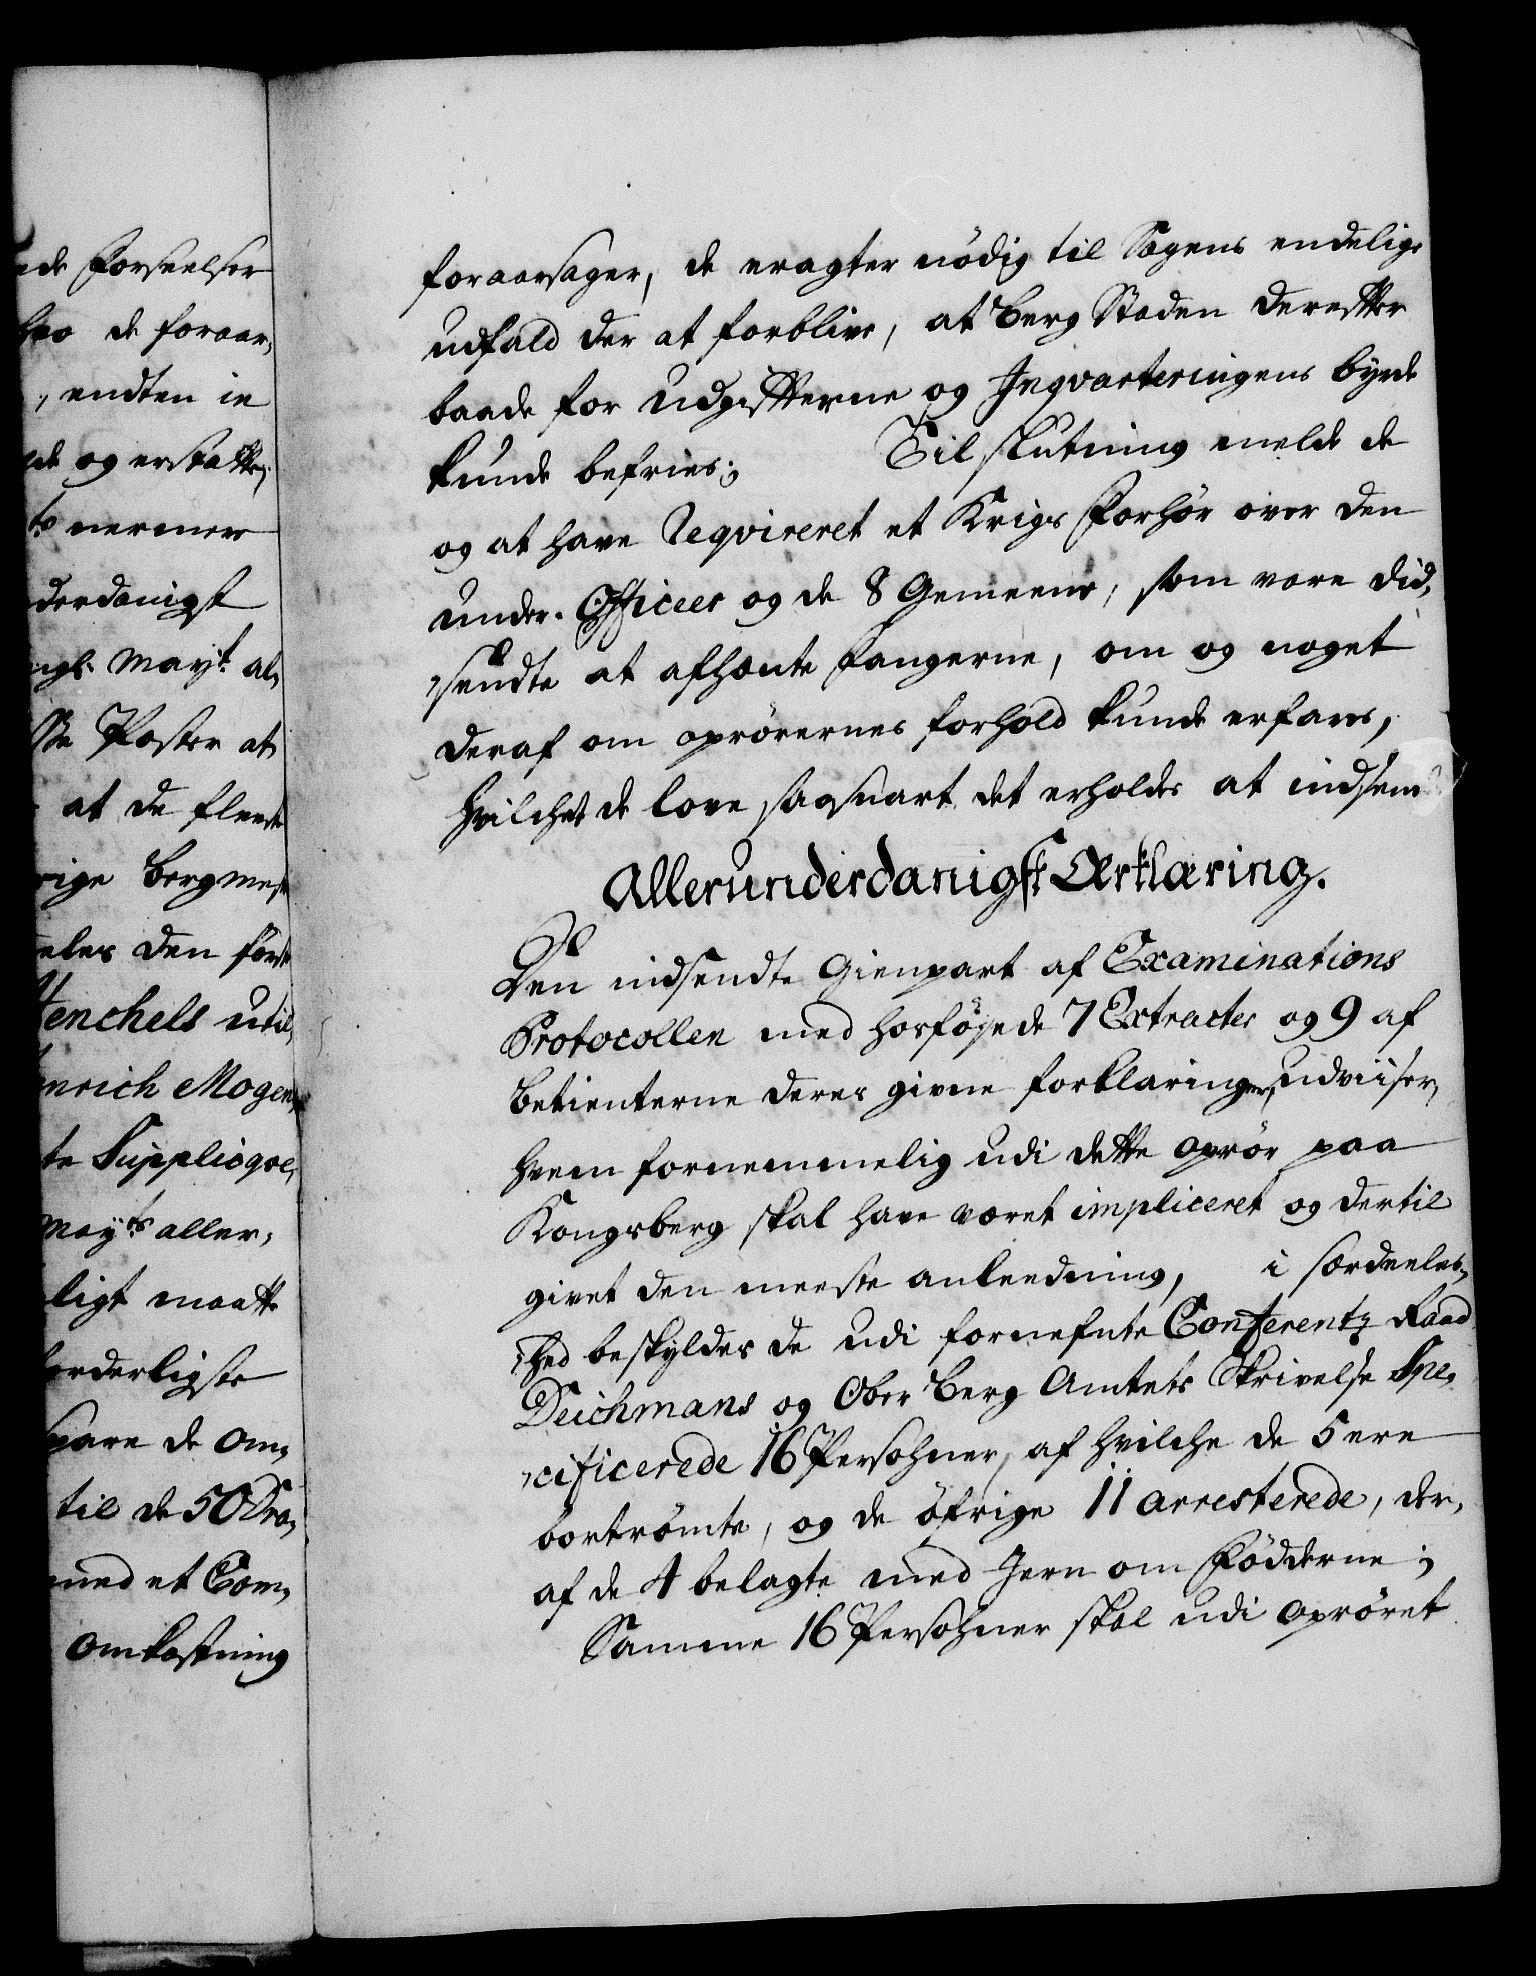 ede Forseelser
de foraar,
, endten in
de og erstatte,
nermere
derdanigst
ngl: Mayt. al,
Poster at
at de fleeste
rige Bergmest
eles den første
Henchels util,
nrich Mogens
te Supplicqve,
Mayts aller,
ligt maatte
orderligste
spare de om,
til de 50 Dra,
med et Com,
Omkostning
foraarsager, de eragter nödig til Sagens endelige
udfald der at forblive, at Berg Staden derefter
baade for Udgiffterne og Inqvarteringens byrde
kunde befries; Til slutning melde de
og at have Reqvireret et Krigs Forhör over den
under-Officeer og de 8 Gemeene, som vare did,
,sendte at afhente Fangerne, om og noget
deraf om oprörernes forhold kunde erfares,
hvilchet de love saasnart det erholdes at indsende
Allerunderdanigst Erklæring.
Den indsendte Gienpart af Examinations
Protocollen med hosföyede 7 Extracter og 9 af
betienterne deres givne forklaringer, udviiser,
hvem fornemmelig udi dette oprör paa
Kongsberg skal have været impliceret og dertil
givet den meeste anleedning, i særdeeles,
,hed beskyldes de udi fornefnte Conferentz Raad
Deichmans og Ober Berg Amtets Skrivelse Spe,
,cificerede 16 Persohner, af hvilche de 5 ere
bortrömte, og de öfrige 11 arresterede, der,
af de 4 belagte med Jern om Födderne;
Samme 16 Persohner skal udi opröret